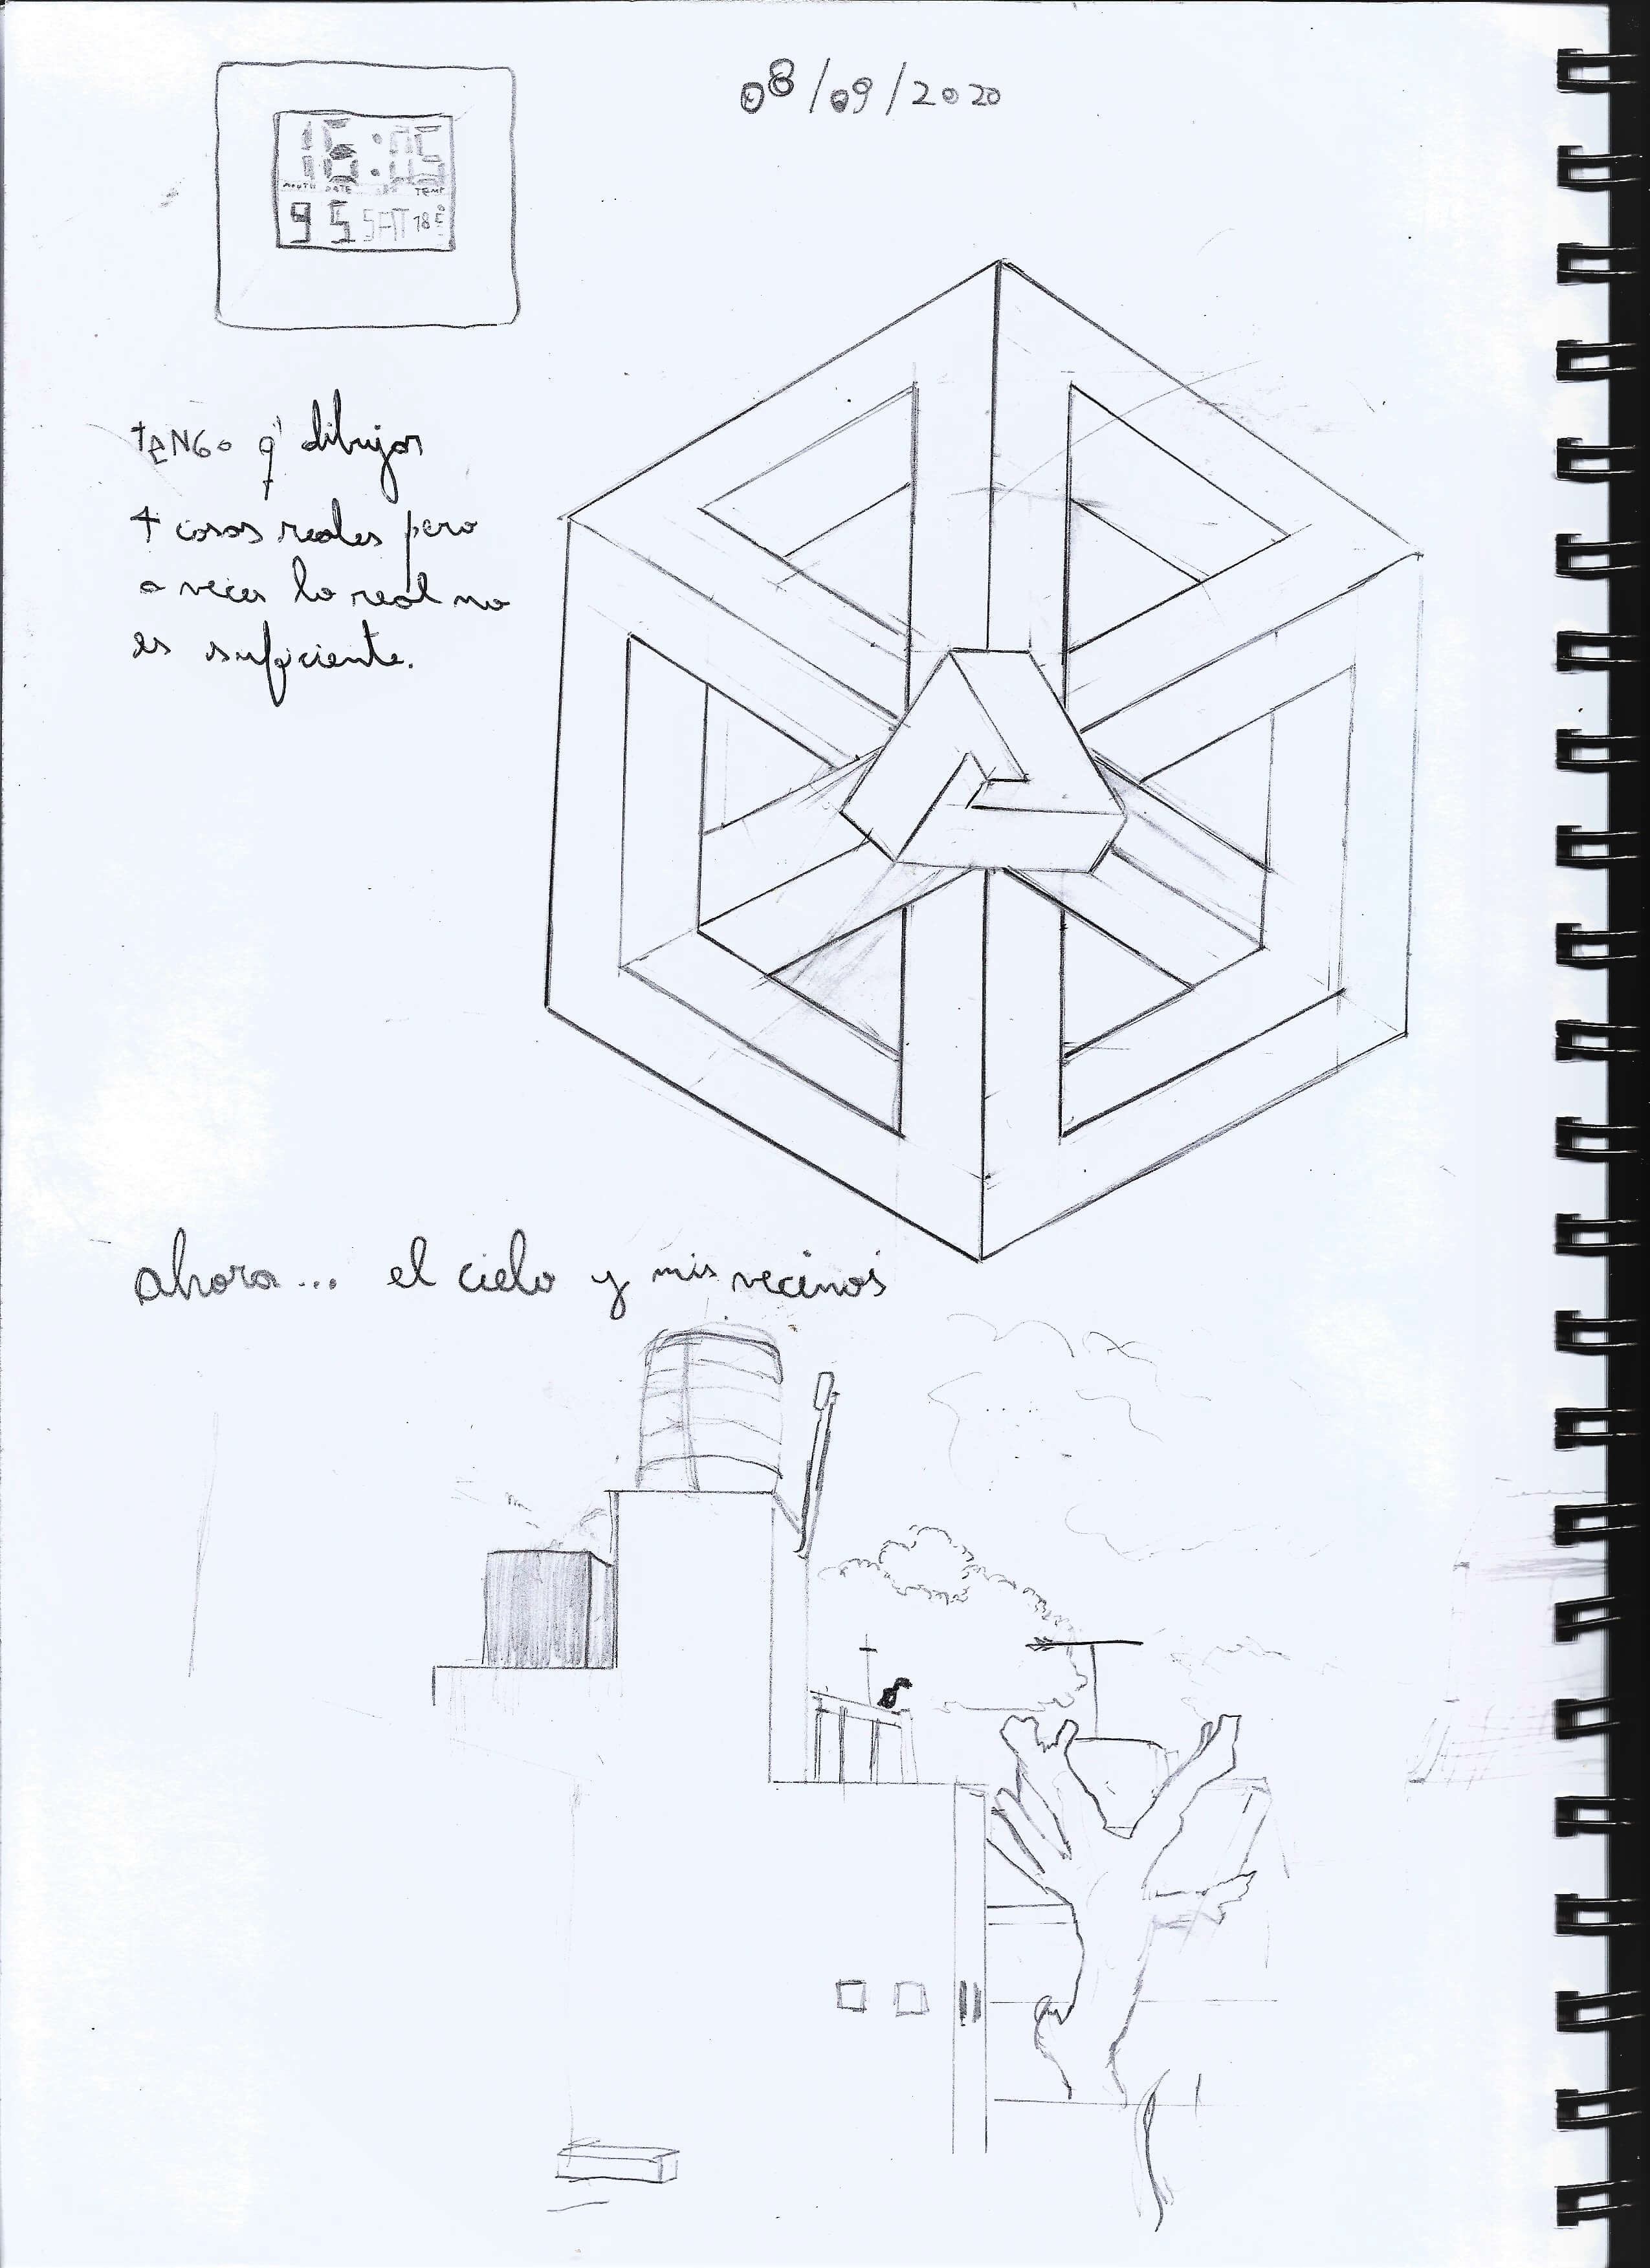 08/09/2020
16:15
MONTH DATE TEMP
9 5 SAT 18°C
TENGO q' dibujar
4 cosas reales pero
a veces lo real no
es suficiente.
ahora... el cielo y mis vecinos